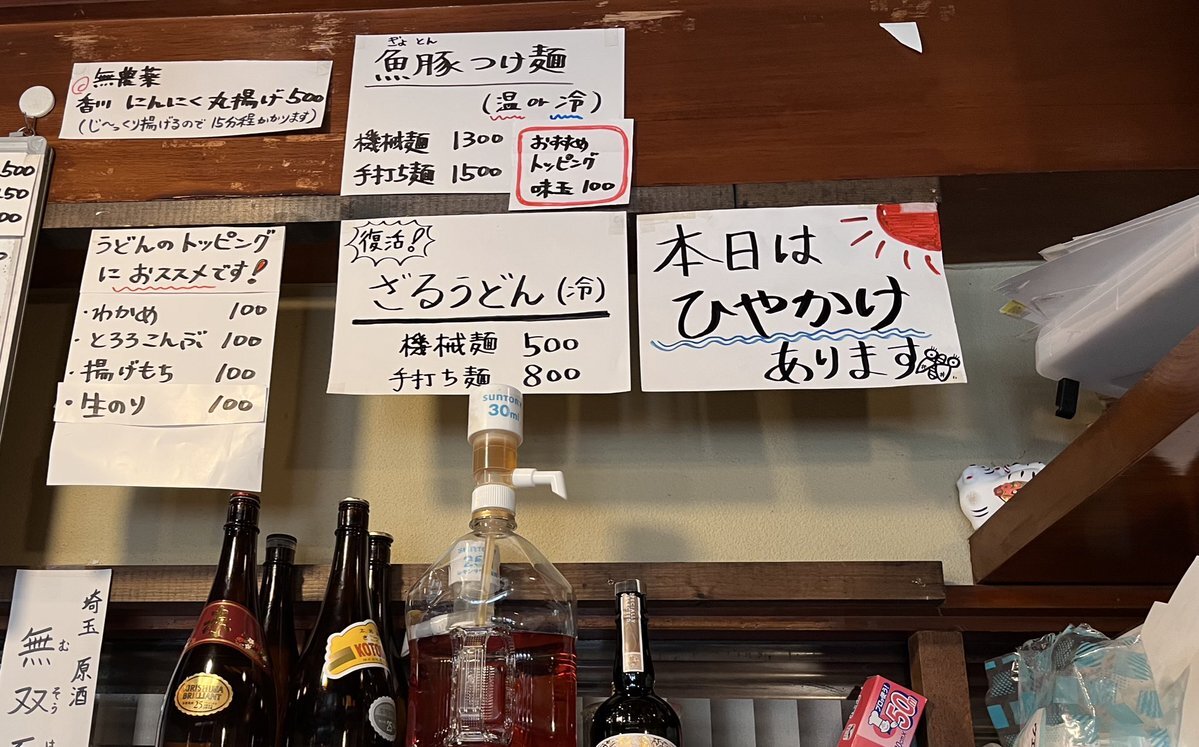 無農薬
香川 にんにく丸揚げ 500
(じ〜っくり揚げるので15分程かかります)
ぎょ とん
魚豚つけ麺
(温 or 冷)
機械麺 1300
手打ち麺 1500
おすすめ
トッピング
味玉 100
500
50
00
うどんのトッピング
に おススメです!
・わかめ 100
・とろろこんぶ 100
・揚げもち 100
・生のり 100
復活!
ざるうどん(冷)
機械麺 500
手打ち麺 800
本日は
ひやかけ
あります
SUNTORY
30ml
埼玉 原酒
無双
むそう